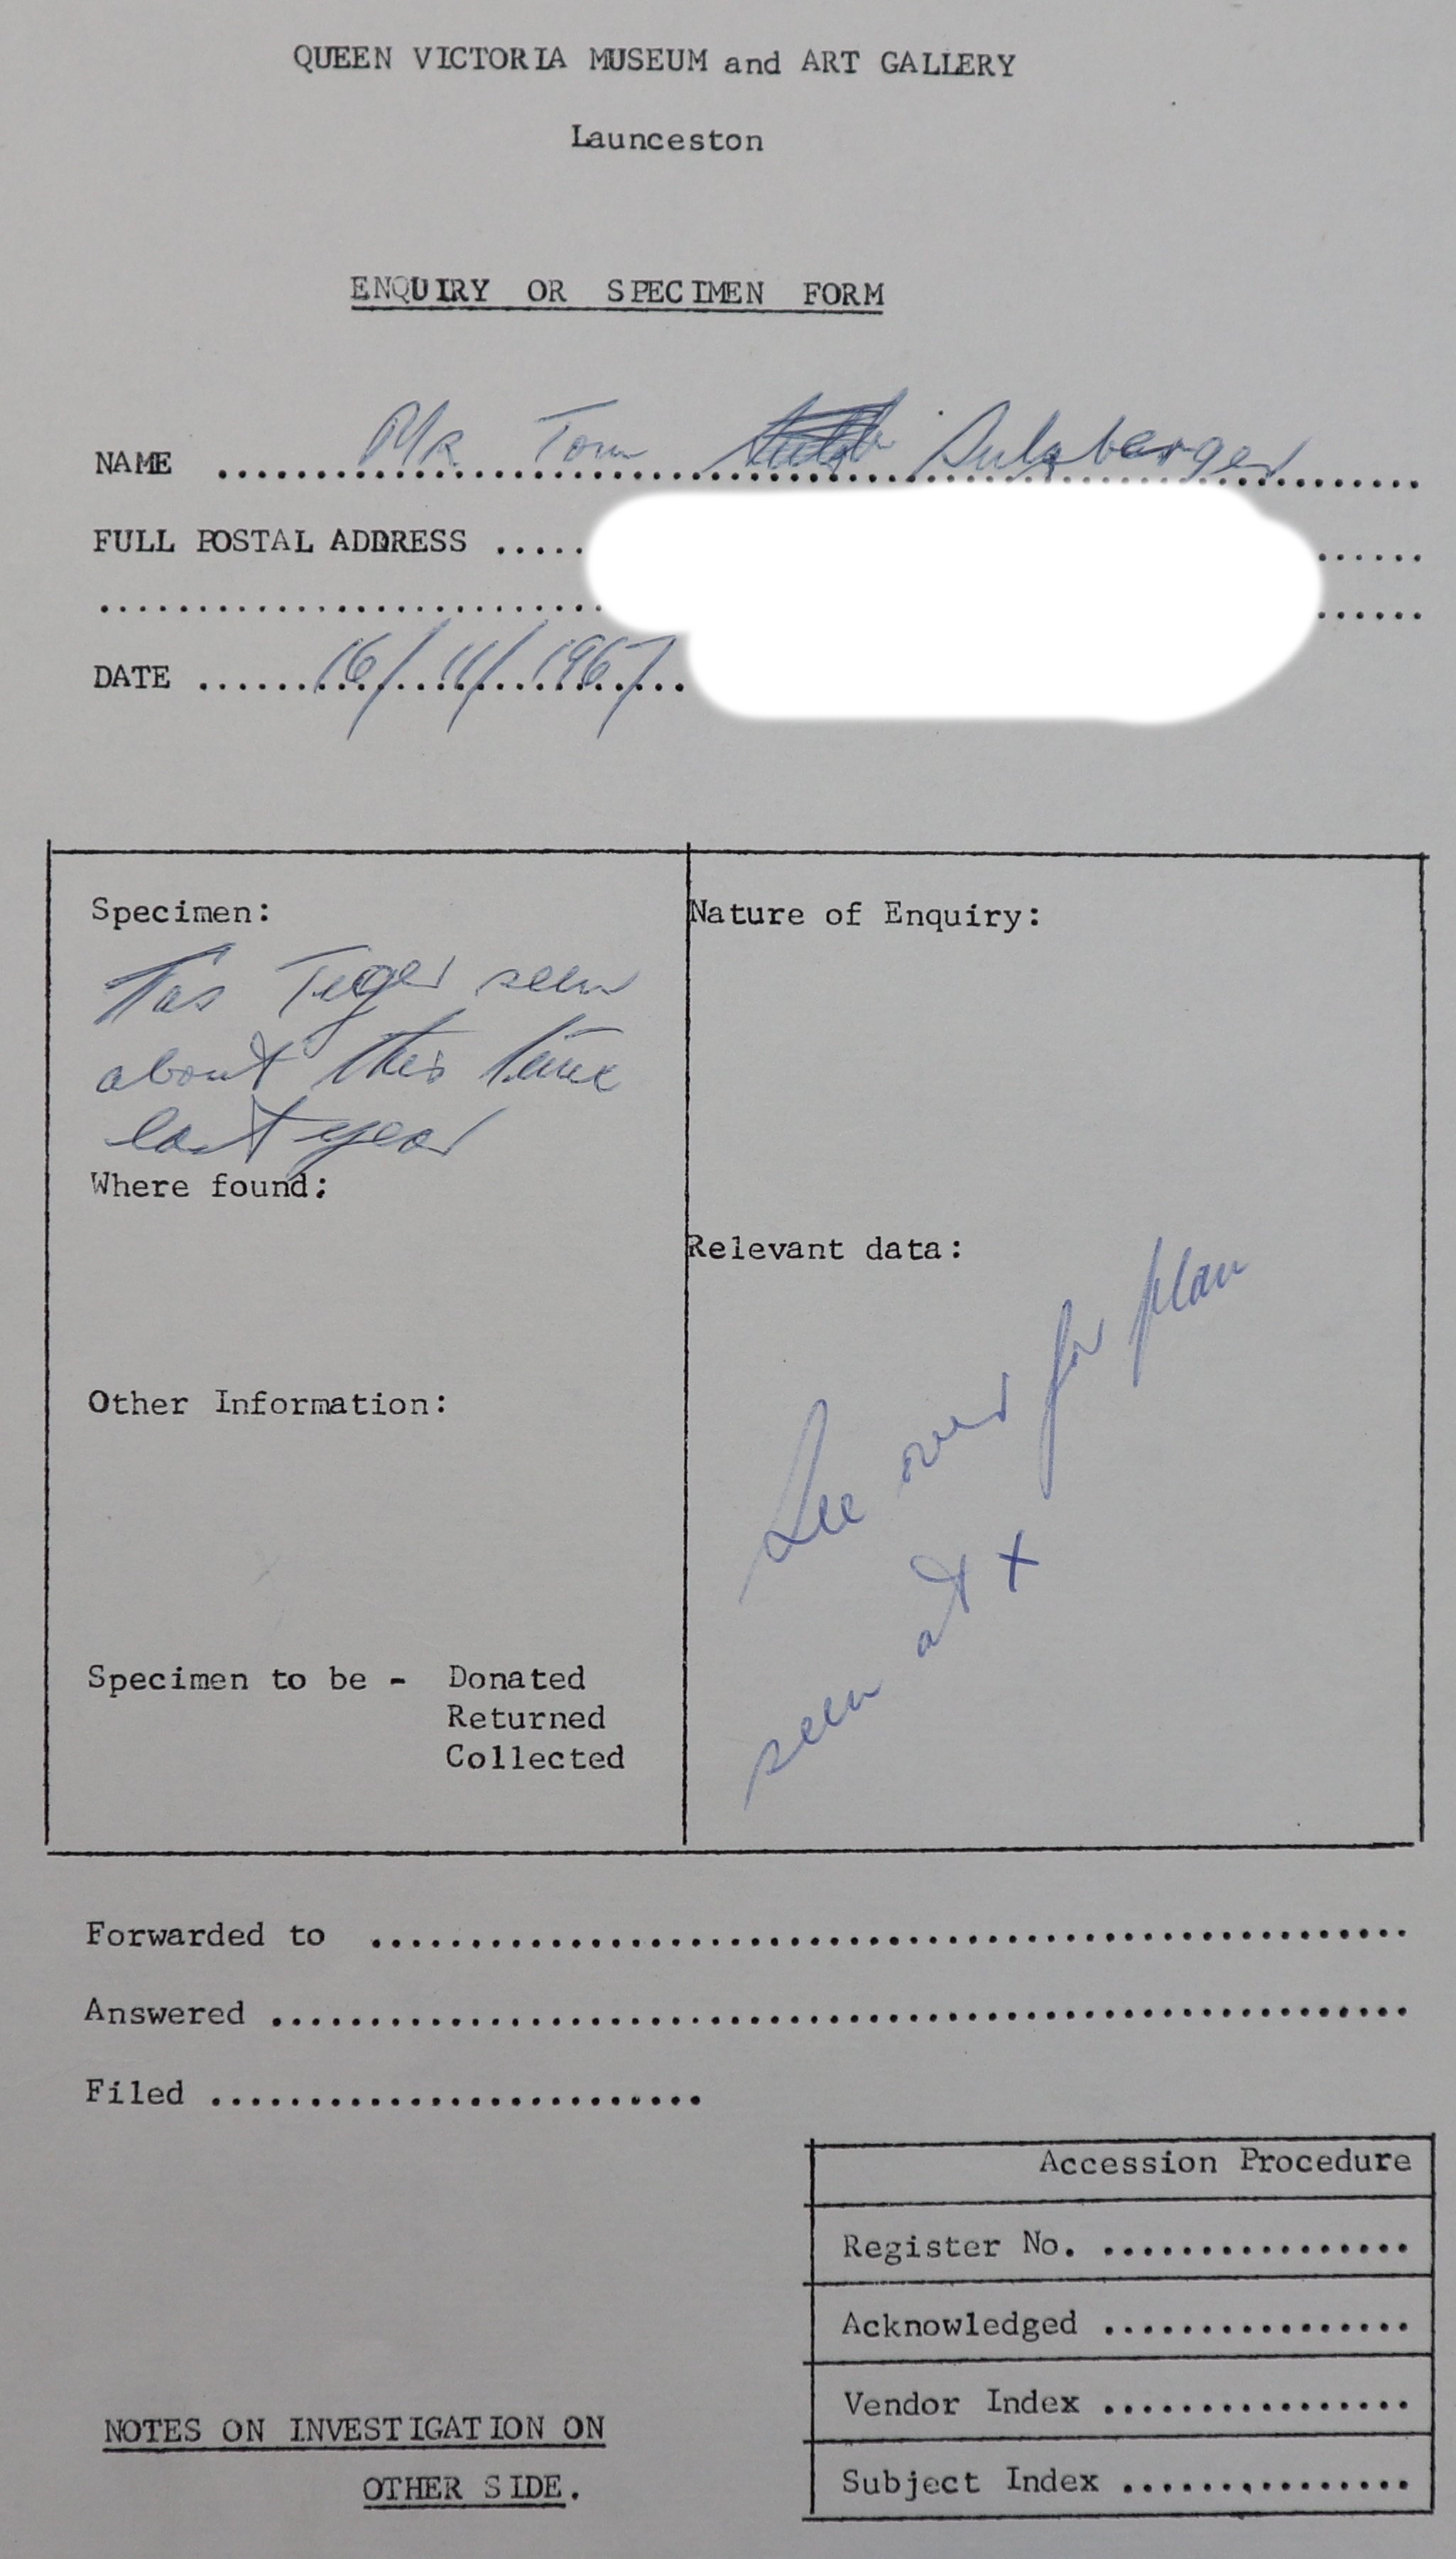 QUEEN VICTORIA MUSEUM and ART GALLERY
Launceston
ENQUIRY OR SPECIMEN FORM
NAME Mr Tom Sulzberger
FULL POSTAL ADDRESS
DATE 16/11/1967
Specimen:
Tas Tiger seen
about this time
last year
Where found:
Other Information:
Specimen to be - Donated
Returned
Collected
Nature of Enquiry:
Relevant data:
See over for plan
seen at x
Forwarded to
Answered
Filed
Accession Procedure
Register No.
Acknowledged
Vendor Index
Subject Index
NOTES ON INVESTIGATION ON
OTHER SIDE.